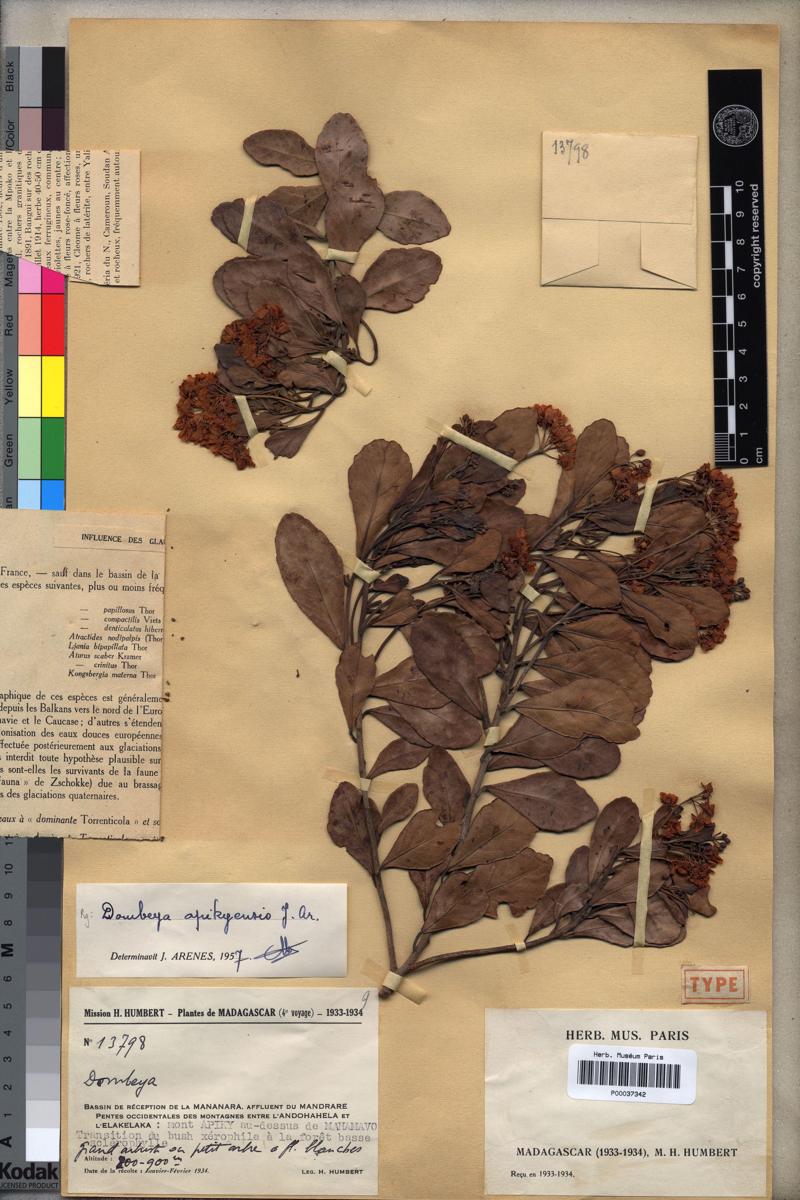 13798
copyright reserved
10 9 8 7 6 5 4 3 2 1 0
cm
Black
Color
Magen
Red
Yellow
Green
entre la Mpoko et
rochers granitiques
1891, Bangui sur des roch
illet 1914, herbe 40-50 cm
aux ferrugineux, commun
iolettes, jaunes au centre;
à fleurs rose-foncé, affection
921, Cleome à fleurs roses, u
rochers de latérite, entre Yali
éria du N., Cameroun, Soudan A
et rocheux, fréquemment autour
INFLUENCE DES GLA
France, — sauf dans le bassin de la
es espèces suivantes, plus ou moins fréq
— papillosus Thor
— compactilis Viets
— denticulatus hibern
Atractides nodipalpis (Thor
Ljania bipapillata Thor
Aturus scaber Kramer
— crinitus Thor
Kongsbergia materna Thor
aphique de ces espèces est généraleme
depuis les Balkans vers le nord de l'Euro
navie et le Caucase; d'autres s'étenden
onisation des eaux douces européennes
ffectuée postérieurement aux glaciations
interdit toute hypothèse plausible sur
s sont-elles les survivants de la faune
fauna » de Zschokke) due au brassag
s des glaciations quaternaires.
eaux à « dominante Torrenticola » et so
11
10
9
8
M
A
Kodak
LICENSED PRODUCT
Dombeya apikyensis J. Ar.
Determinavit J. ARENES, 1957.
9
Mission H. HUMBERT – Plantes de MADAGASCAR (4e voyage) – 1933-1934
N° 13798
Dombeya
BASSIN DE RÉCEPTION DE LA MANANARA, AFFLUENT DU MANDRARE
PENTES OCCIDENTALES DES MONTAGNES ENTRE L'ANDOHAHELA ET
L'ELAKELAKA : mont APIKY au-dessus de MAHAMAVO
Transition du bush xérophile à la forêt basse
sclérophylle
grand arbuste ou petit arbre à fl. blanches
Altitude : 800-900m
Date de la récolte : Janvier-Février 1934. LEG. H. HUMBERT
TYPE
HERB. MUS. PARIS
Herb. Muséum Paris
P00037342
MADAGASCAR (1933-1934), M. H. HUMBERT
Reçu en 1933-1934.